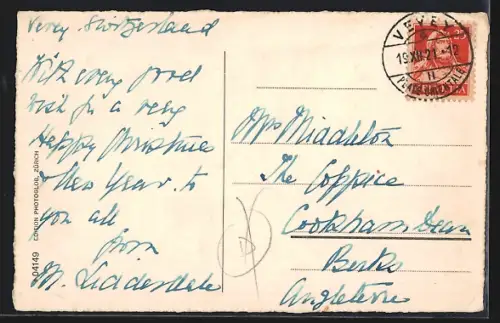 Vevey Switzerland
With every good
wish for a very
Happy Christmas
& New Year to
you all
from
M. Lidderdale
04149 EDITION PHOTOGLOB, ZÜRICH
VEVEY
19.XII.21.-12
Mrs Middleton
The Coppice
Cookham Dean
Berks
Angleterre